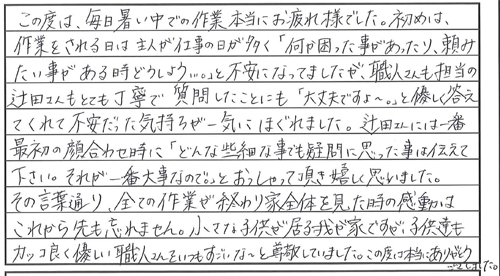 この度は、毎日暑い中での作業本当にお疲れ様でした。初めは、
作業をされる日は主人が仕事の日が多く「何か困った事があったり、頼み
たい事がある時どうしよう…。」と不安になってましたが、職人さんも担当の
辻田さんもとても丁寧で質問したことにも「大丈夫ですよ〜。」と優しく答え
てくれて不安だった気持ちが一気にほぐれました。辻田さんには一番
最初の顔合わせ時に「どんな些細な事でも疑問に思った事は伝えて
下さい。それが一番大事なので。」とおっしゃって頂き嬉しく思いました。
その言葉通り、全ての作業が終わり家全体を見た時の感動は
これから先も忘れません。小さな子供が居る我が家ですが、子供達も
カッコ良く優しい職人さんをいつもすごいな〜と尊敬していました。この度は本当にありがとう
ございました。